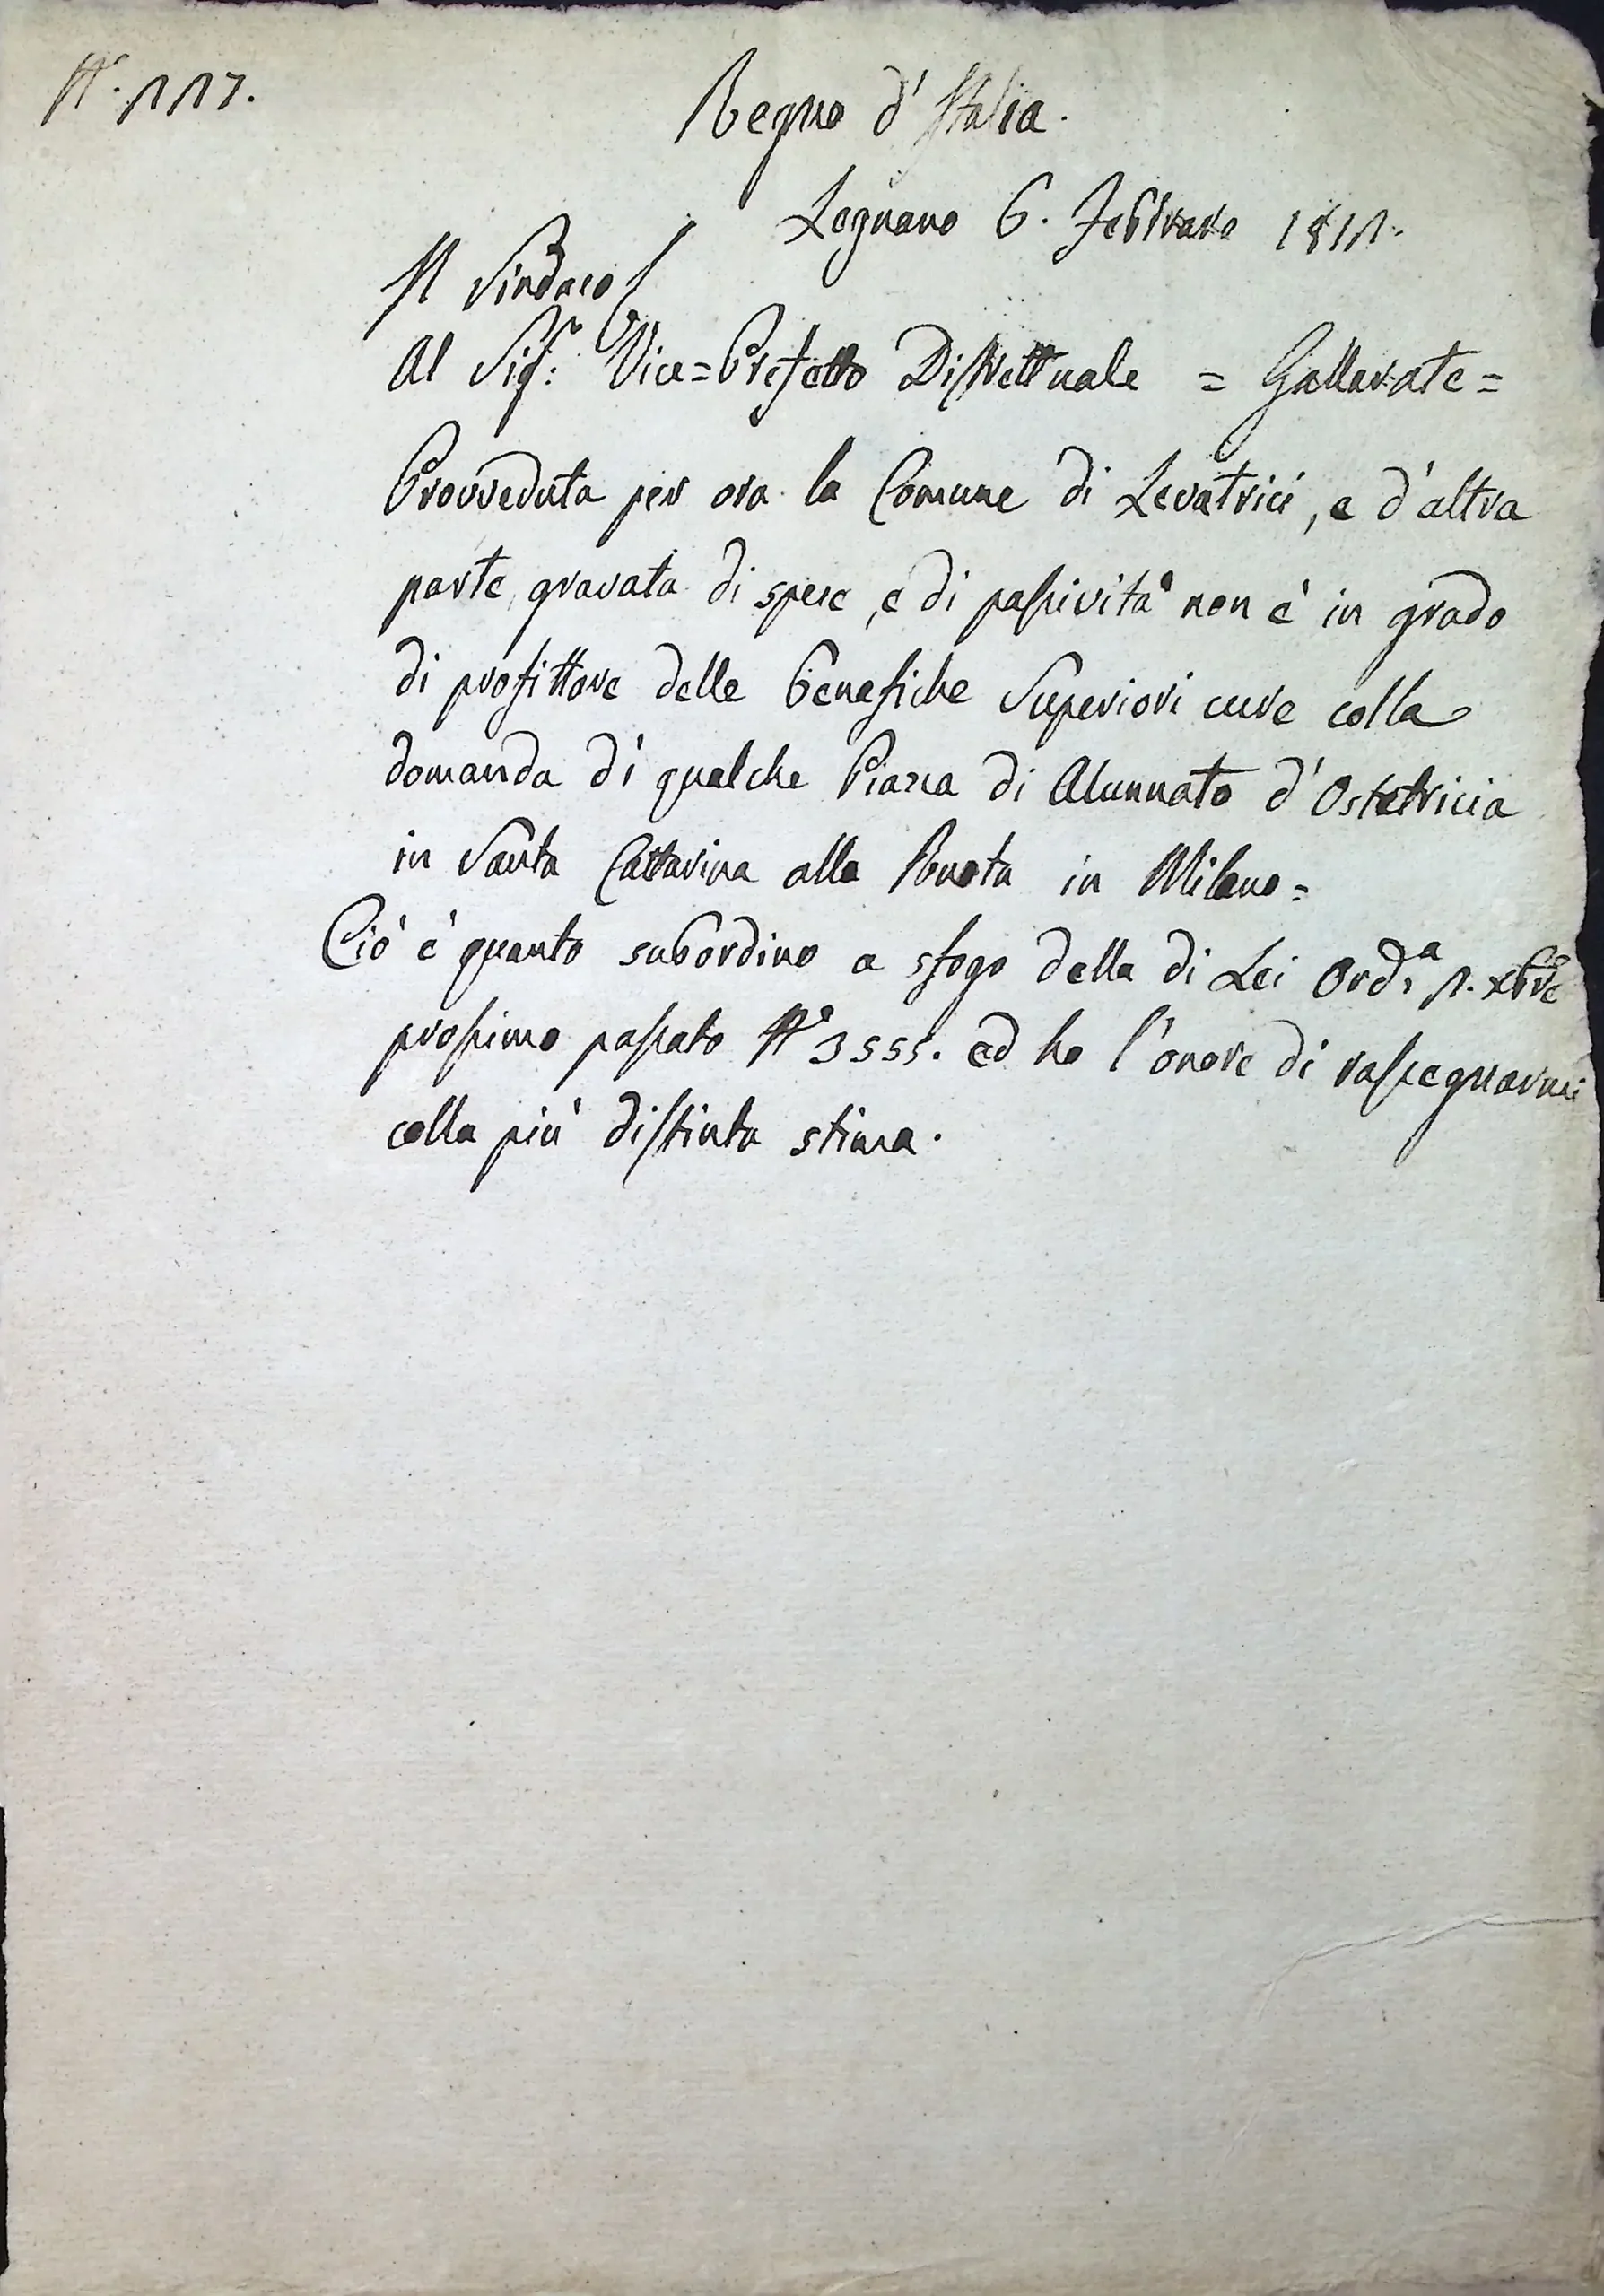 N. 117.
Regno d'Italia.
Legnano 6. Febbraro 1811.
Il Sindaco
Al Sig.r Vice=Prefetto Distrettuale = Gallarate =
Provveduta per ora la Comune di Levatrici, e d'altra
parte gravata di spese, e di passività non è in grado
di profittare delle benefiche Superiori cure colla
domanda di qualche Piazza di Alunnato d'Ostetricia
in Santa Cattarina alla Ruota in Milano=
Ciò è quanto subordino a sfogo della di Lei Ord.a 1. xbre
prossimo passato N° 3555. ed ho l'onore di rassegnarmi
colla più distinta stima.